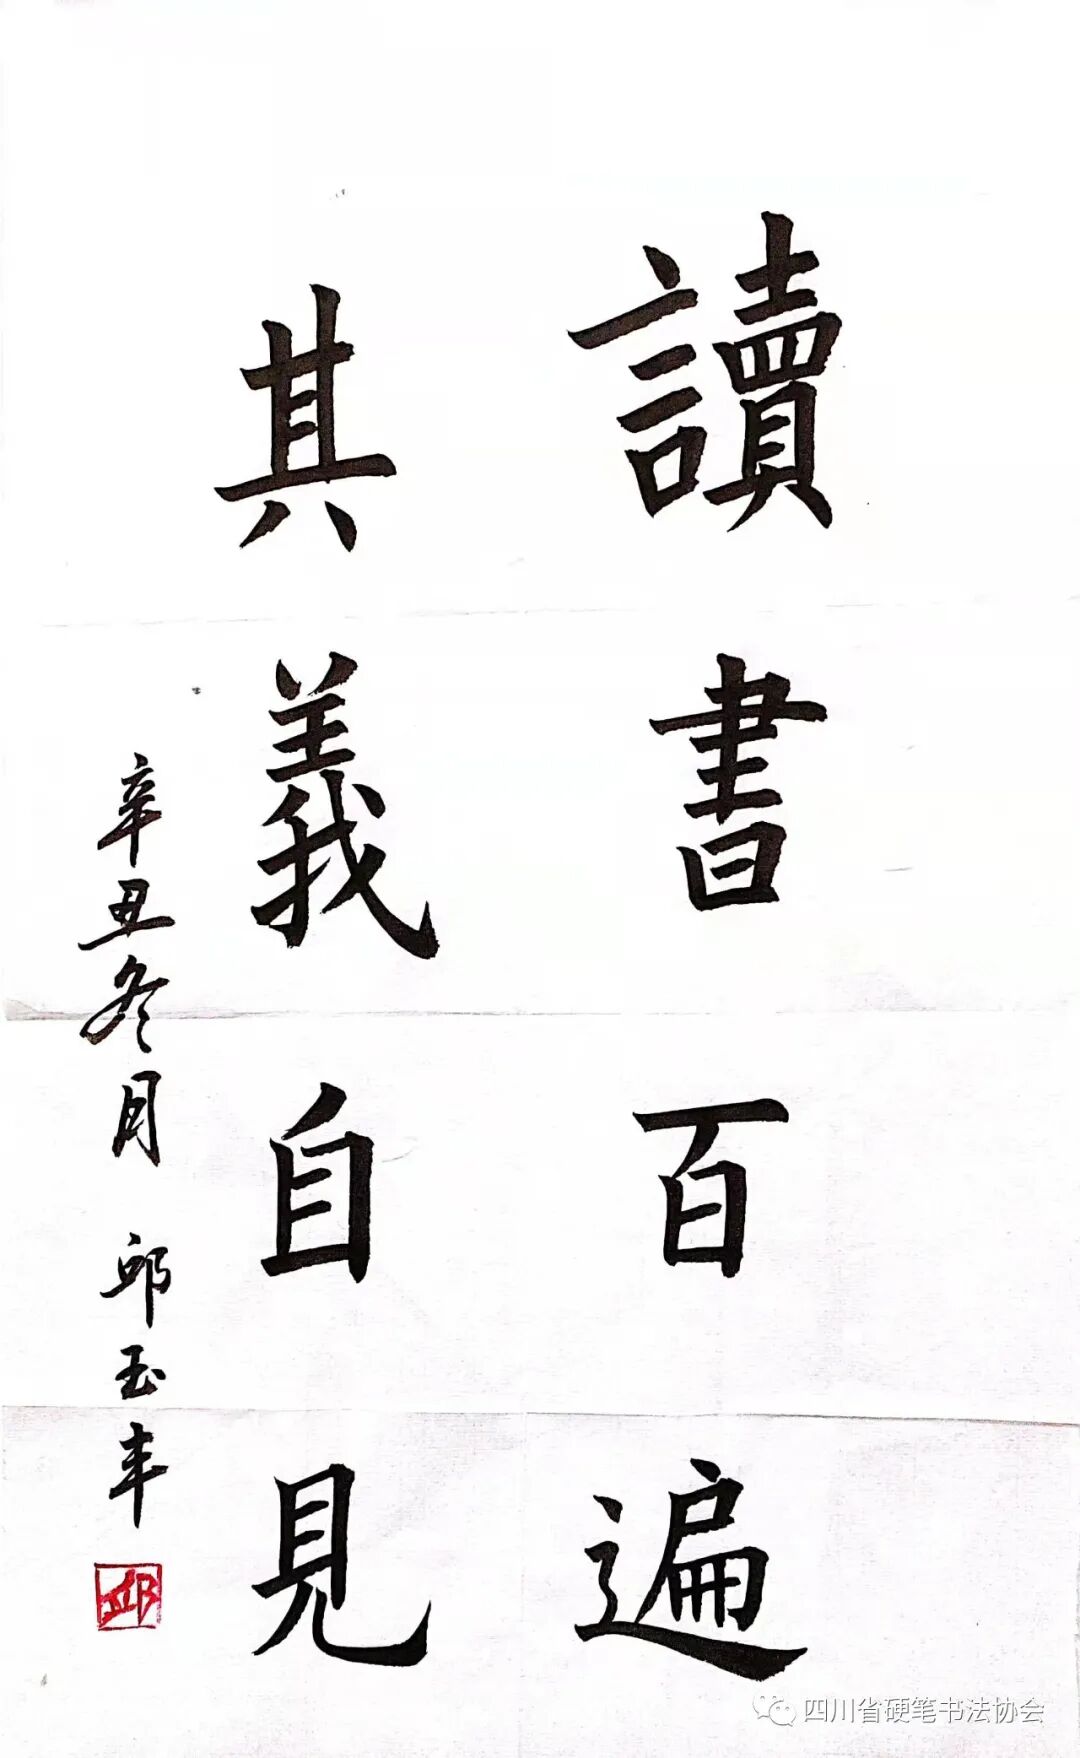 讀書百遍
其義自見
辛丑冬月 邱玉丰
邱
四川省硬笔书法协会